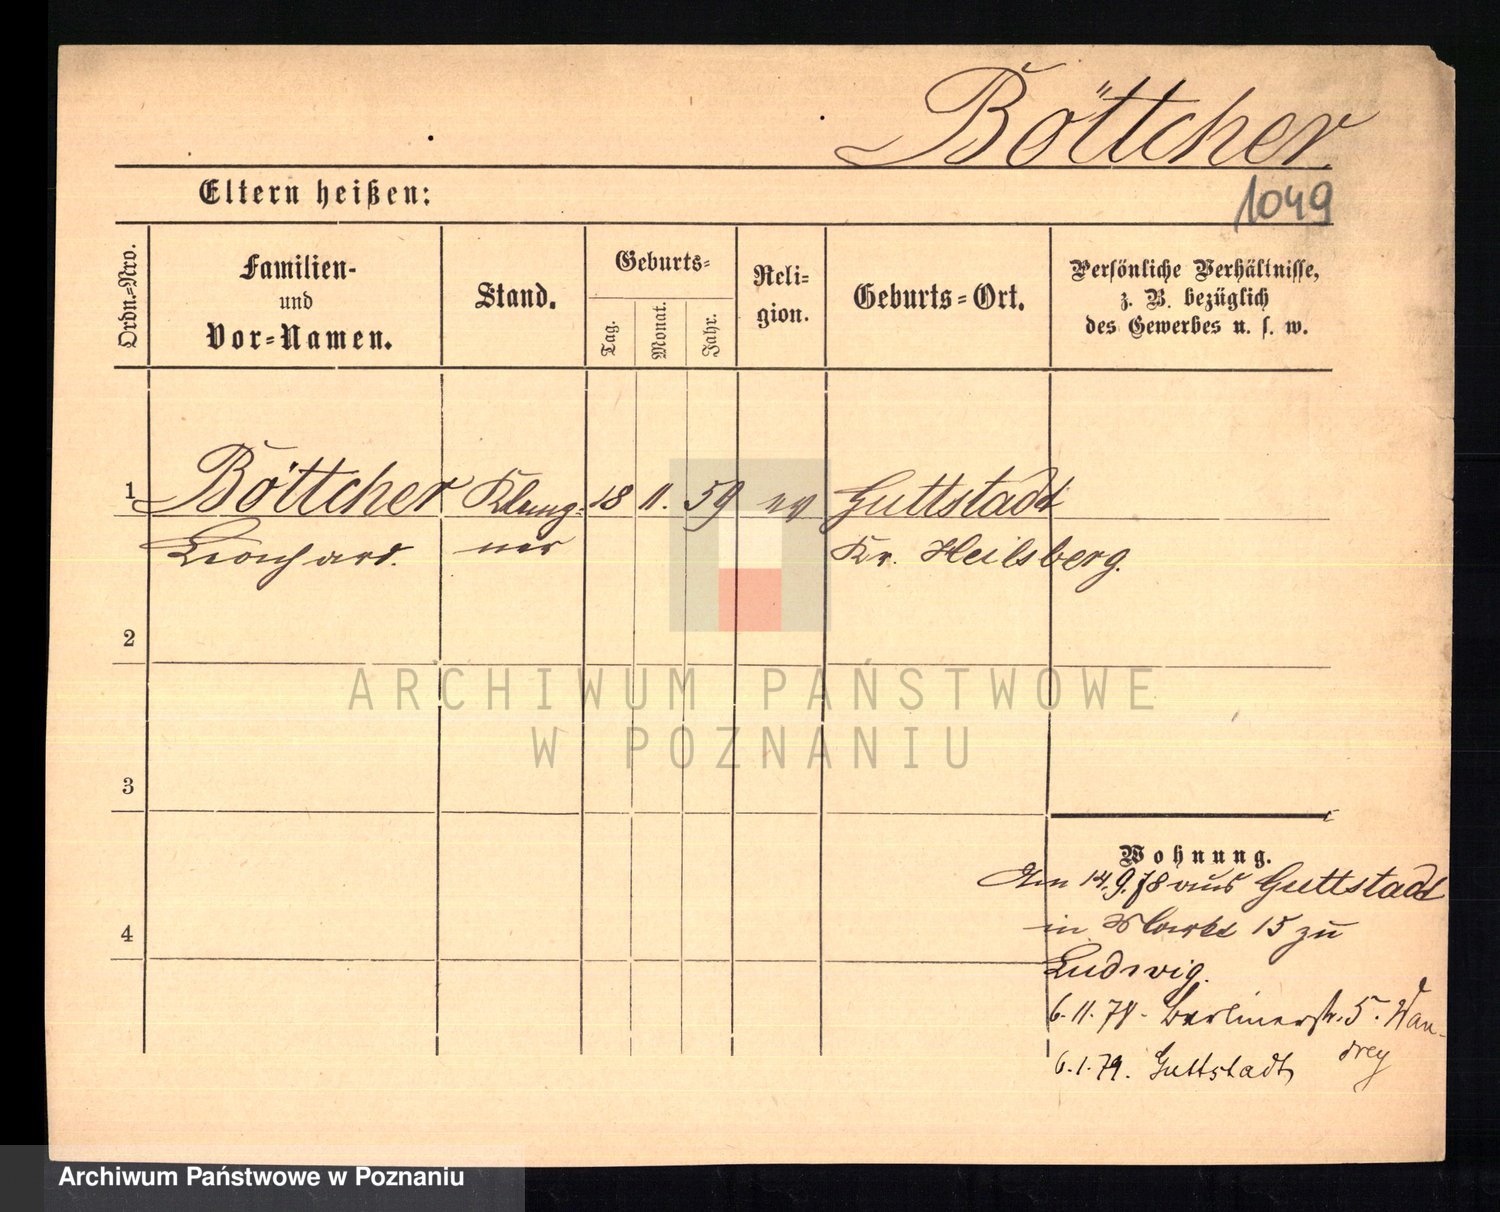 Böttcher
Eltern heißen:
1049
Ordn.-Nro.
Familien-
und
Vor-Namen.
Stand.
Geburts-
Tag.
Monat.
Jahr.
Reli-
gion.
Geburts-Ort.
Persönliche Verhältnisse,
z. B. bezüglich
des Gewerbes u. s. w.
1 Böttcher Klemp- 18 11. 59 ev Guttstadt
Leonhard. ner Kr. Heilsberg.
2
3
4
Wohnung.
Am 14.9.78 aus Guttstadt
in 15 zu
Ludwig.
6.11.78. Berlinerstr. 5. Wan-
drey
6.1.79. Guttstadt
ARCHIWUM PAŃSTWOWE
W POZNANIU
Archiwum Państwowe w Poznaniu